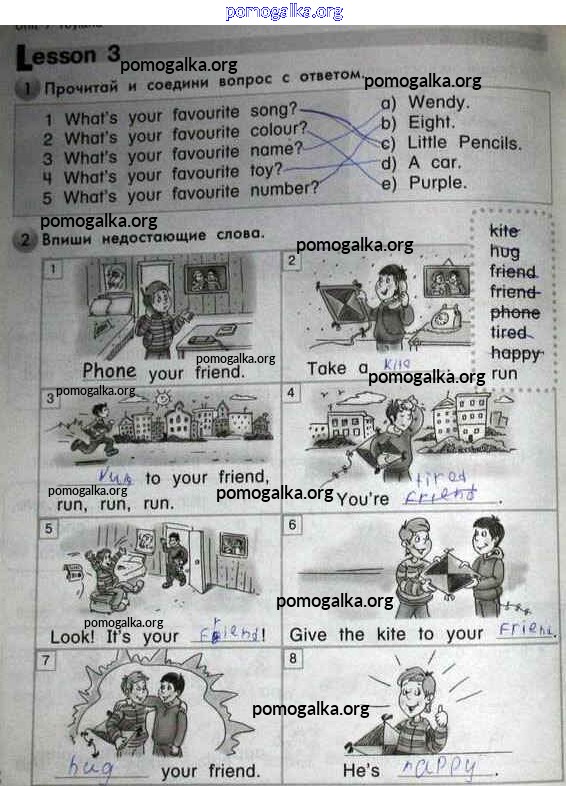 pomogalka.org
Unit 7 Toyland
Lesson 3
pomogalka.org
1 Прочитай и соедини вопрос с ответом.
pomogalka.org
1 What's your favourite song?
2 What's your favourite colour?
3 What's your favourite name?
4 What's your favourite toy?
5 What's your favourite number?
a) Wendy.
b) Eight.
c) Little Pencils.
d) A car.
e) Purple.
pomogalka.org
2 Впиши недостающие слова.
pomogalka.org
kite
hug
friend
friend
phone
tired
happy
run
1
Phone your friend.
pomogalka.org
2
Take a kite.
pomogalka.org
3
pomogalka.org
run to your friend,
run, run, run.
pomogalka.org
4
pomogalka.org
tired
You're friend.
5
pomogalka.org
Look! It's your friend!
6
pomogalka.org
Give the kite to your friend.
7
hug your friend.
8
pomogalka.org
He's happy.